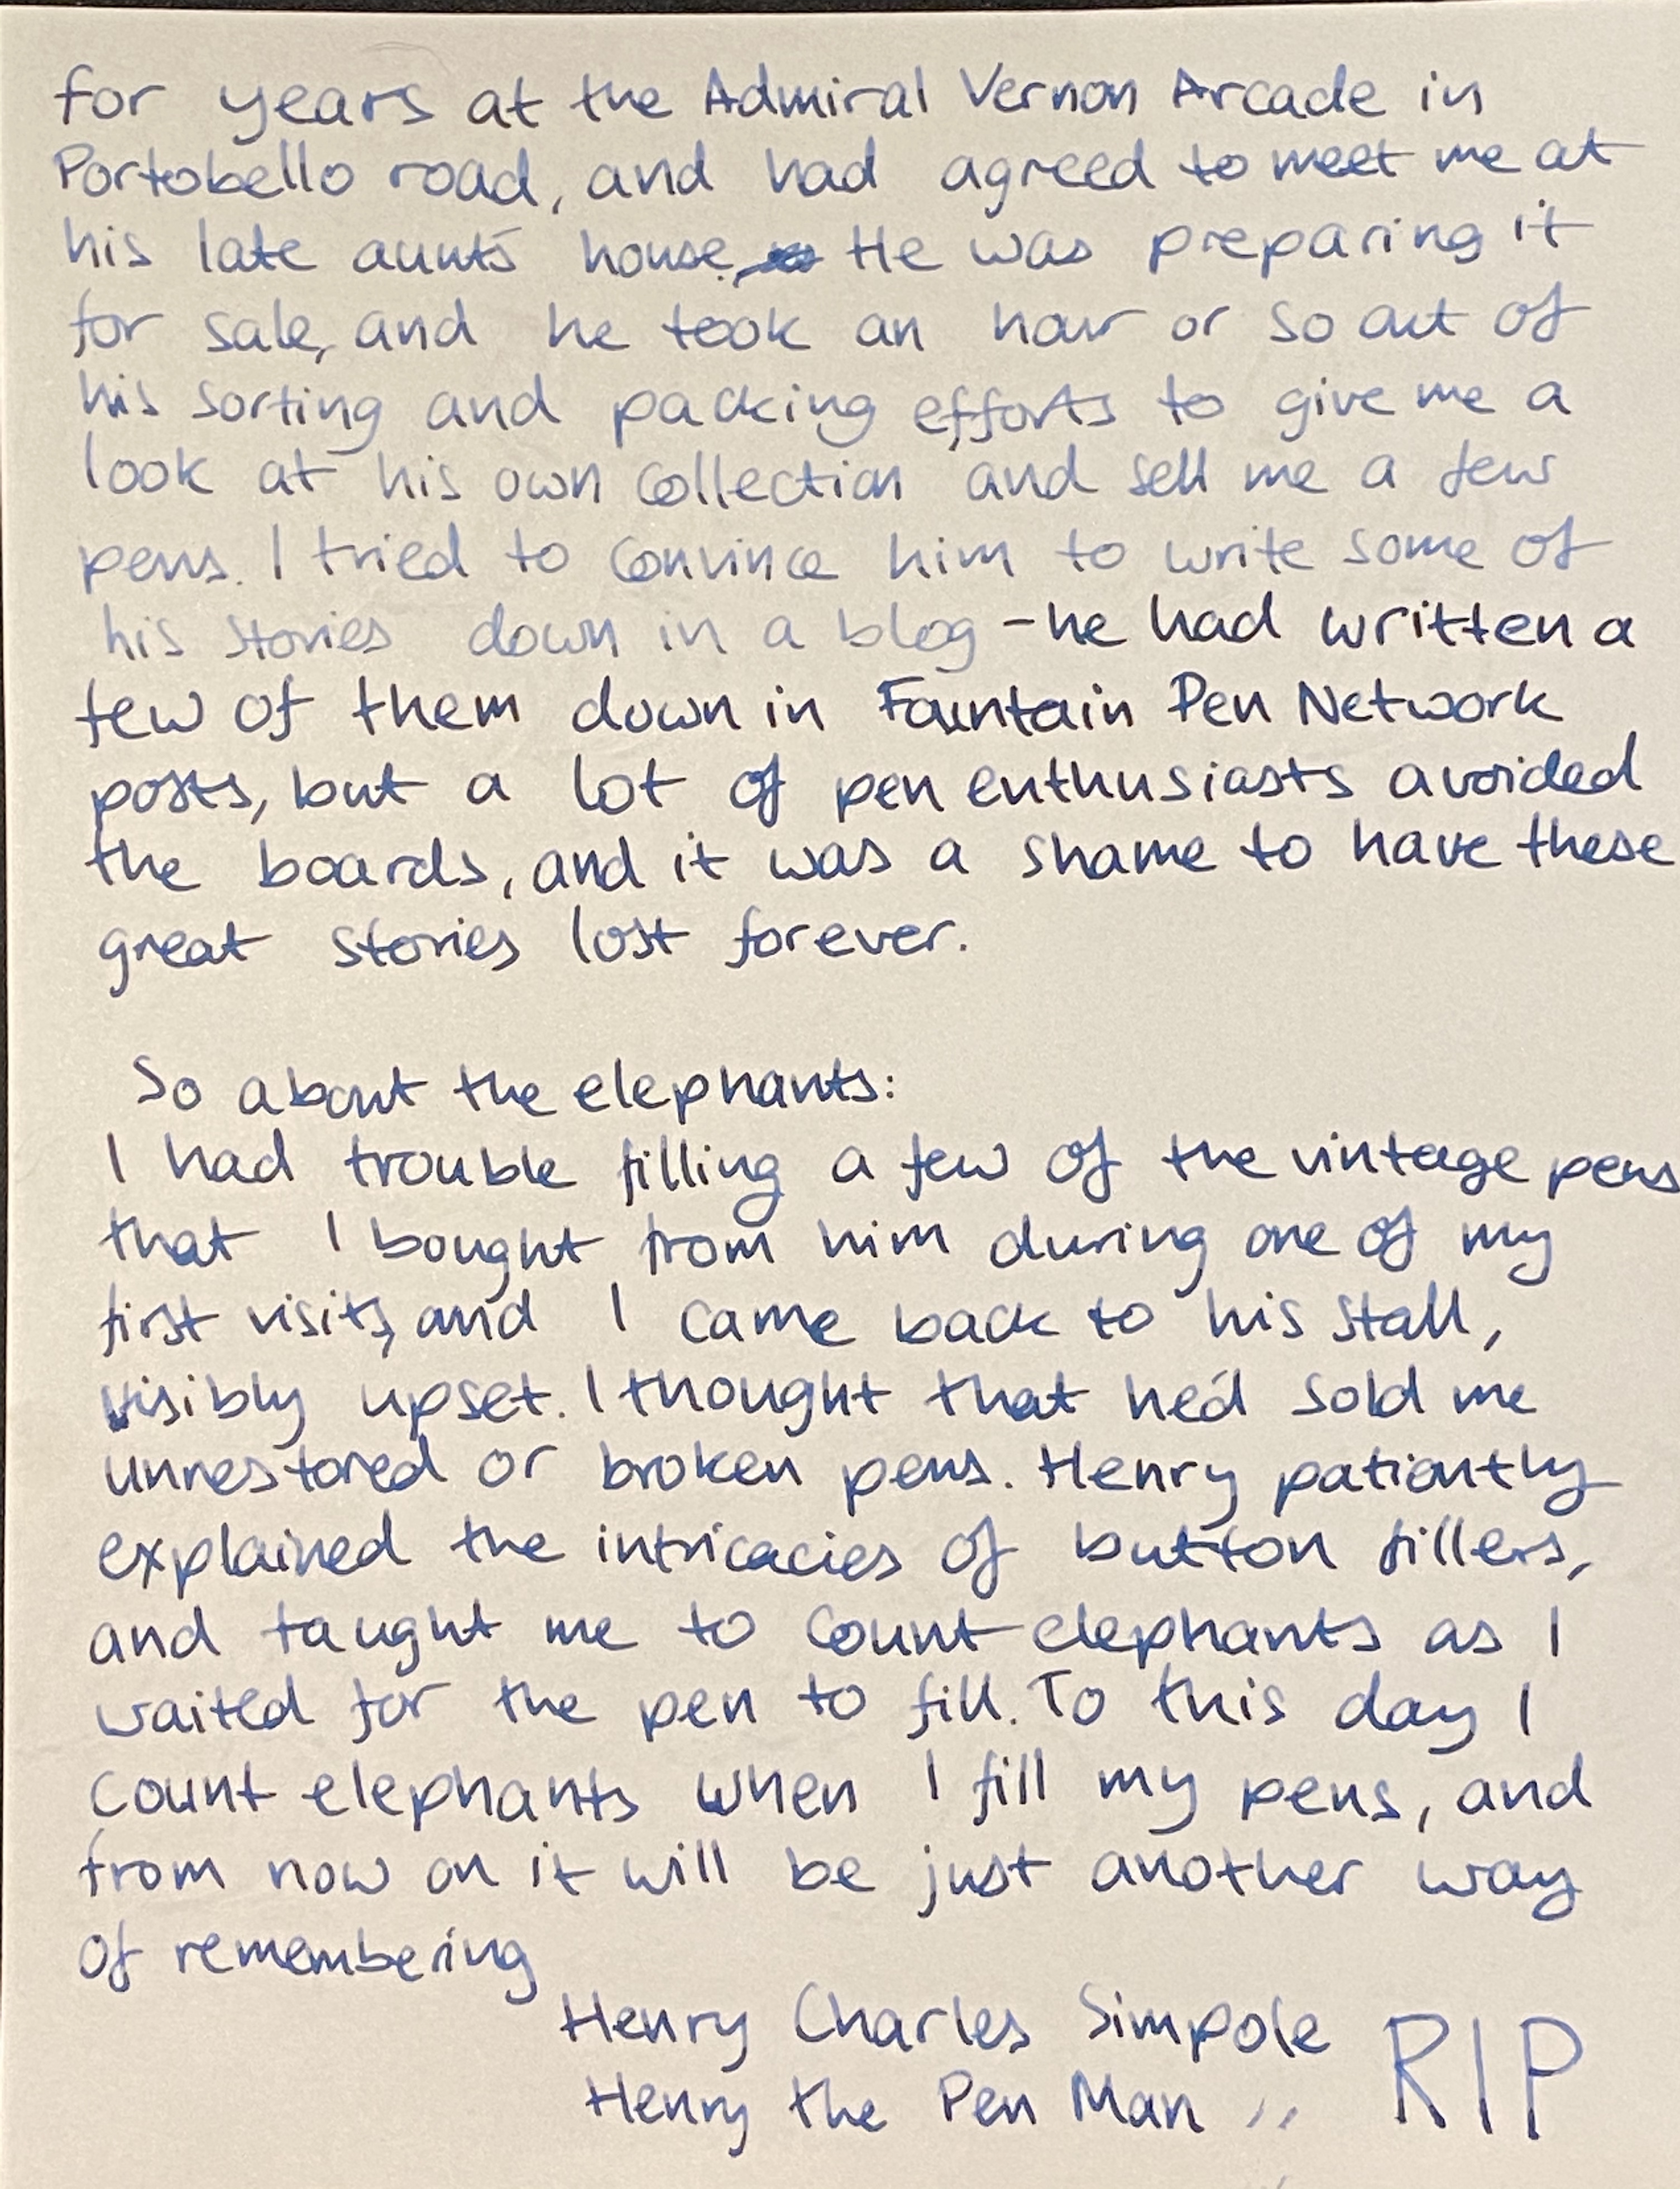 for years at the Admiral Vernon Arcade in
Portobello road, and had agreed to meet me at
his late aunt's house. He was preparing it
for sale, and he took an hour or so out of
his sorting and packing efforts to give me a
look at his own collection and sell me a few
pens. I tried to convince him to write some of
his stories down in a blog - he had written a
few of them down in Fountain Pen Network
posts, but a lot of pen enthusiasts avoided
the boards, and it was a shame to have these
great stories lost forever.
So about the elephants:
I had trouble filling a few of the vintage pens
that I bought from him during one of my
first visits, and I came back to his stall,
visibly upset. I thought that he'd sold me
unrestored or broken pens. Henry patiently
explained the intricacies of button fillers,
and taught me to count elephants as I
waited for the pen to fill. To this day I
count elephants when I fill my pens, and
from now on it will be just another way
of remembering
Henry Charles Simpole
Henry the Pen Man RIP